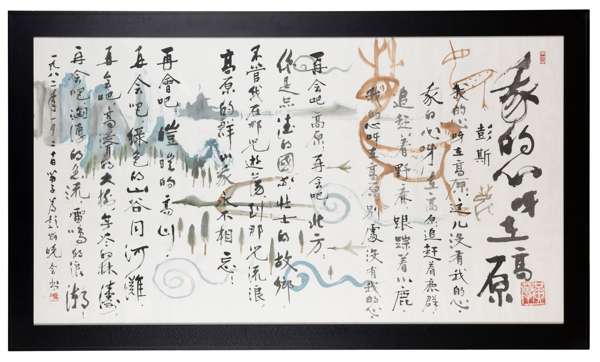 我的心呀在高原
彭斯
我的心呀在高原，这儿没有我的心，
我的心呀在高原追赶着鹿群
追赶着野鹿跟踪着小鹿
我的心呀在高原别处没有我的心
再会吧，高原！再会吧，北方！
你是品德的国家壮士的故乡
不管我在哪儿游荡到哪儿流浪，
高原的群山我永不相忘！
再会吧 皑皑的高山
再会吧 绿色的山谷同河滩
再会吧，高耸的大树无尽的林涛
再会吧，汹涌的急流，雷鸣的浪潮
一九八二年一月二十日